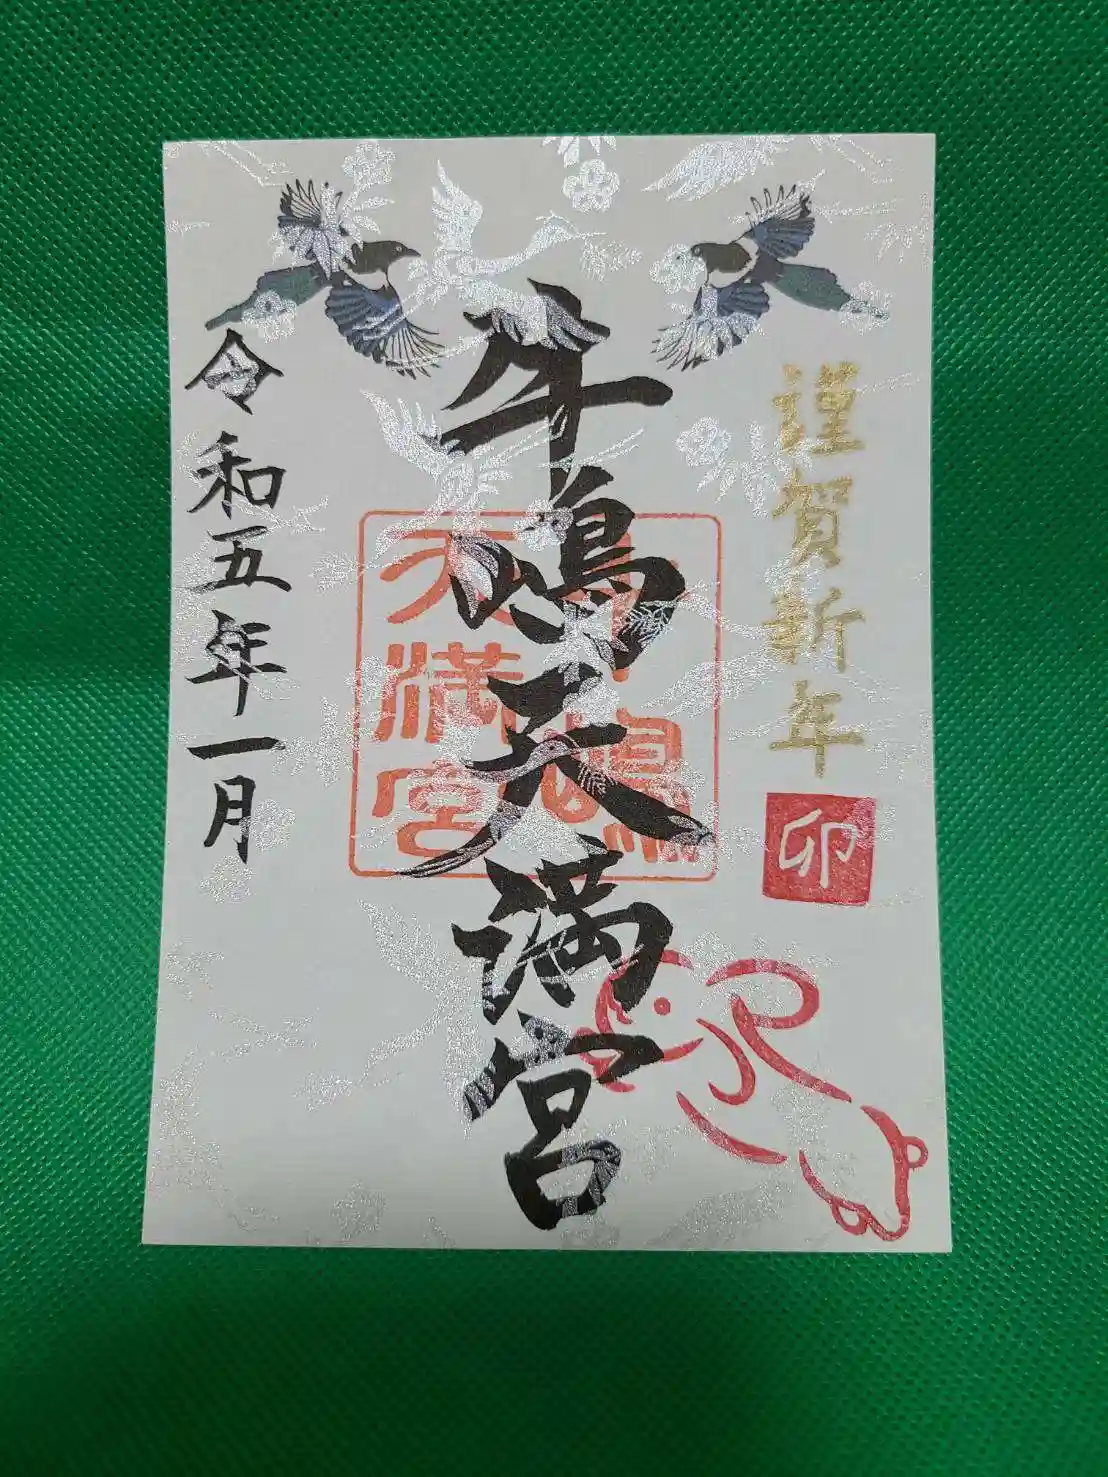 謹賀新年
卯
牛嶋天満宮
牛嶋
天満宮
令和五年一月